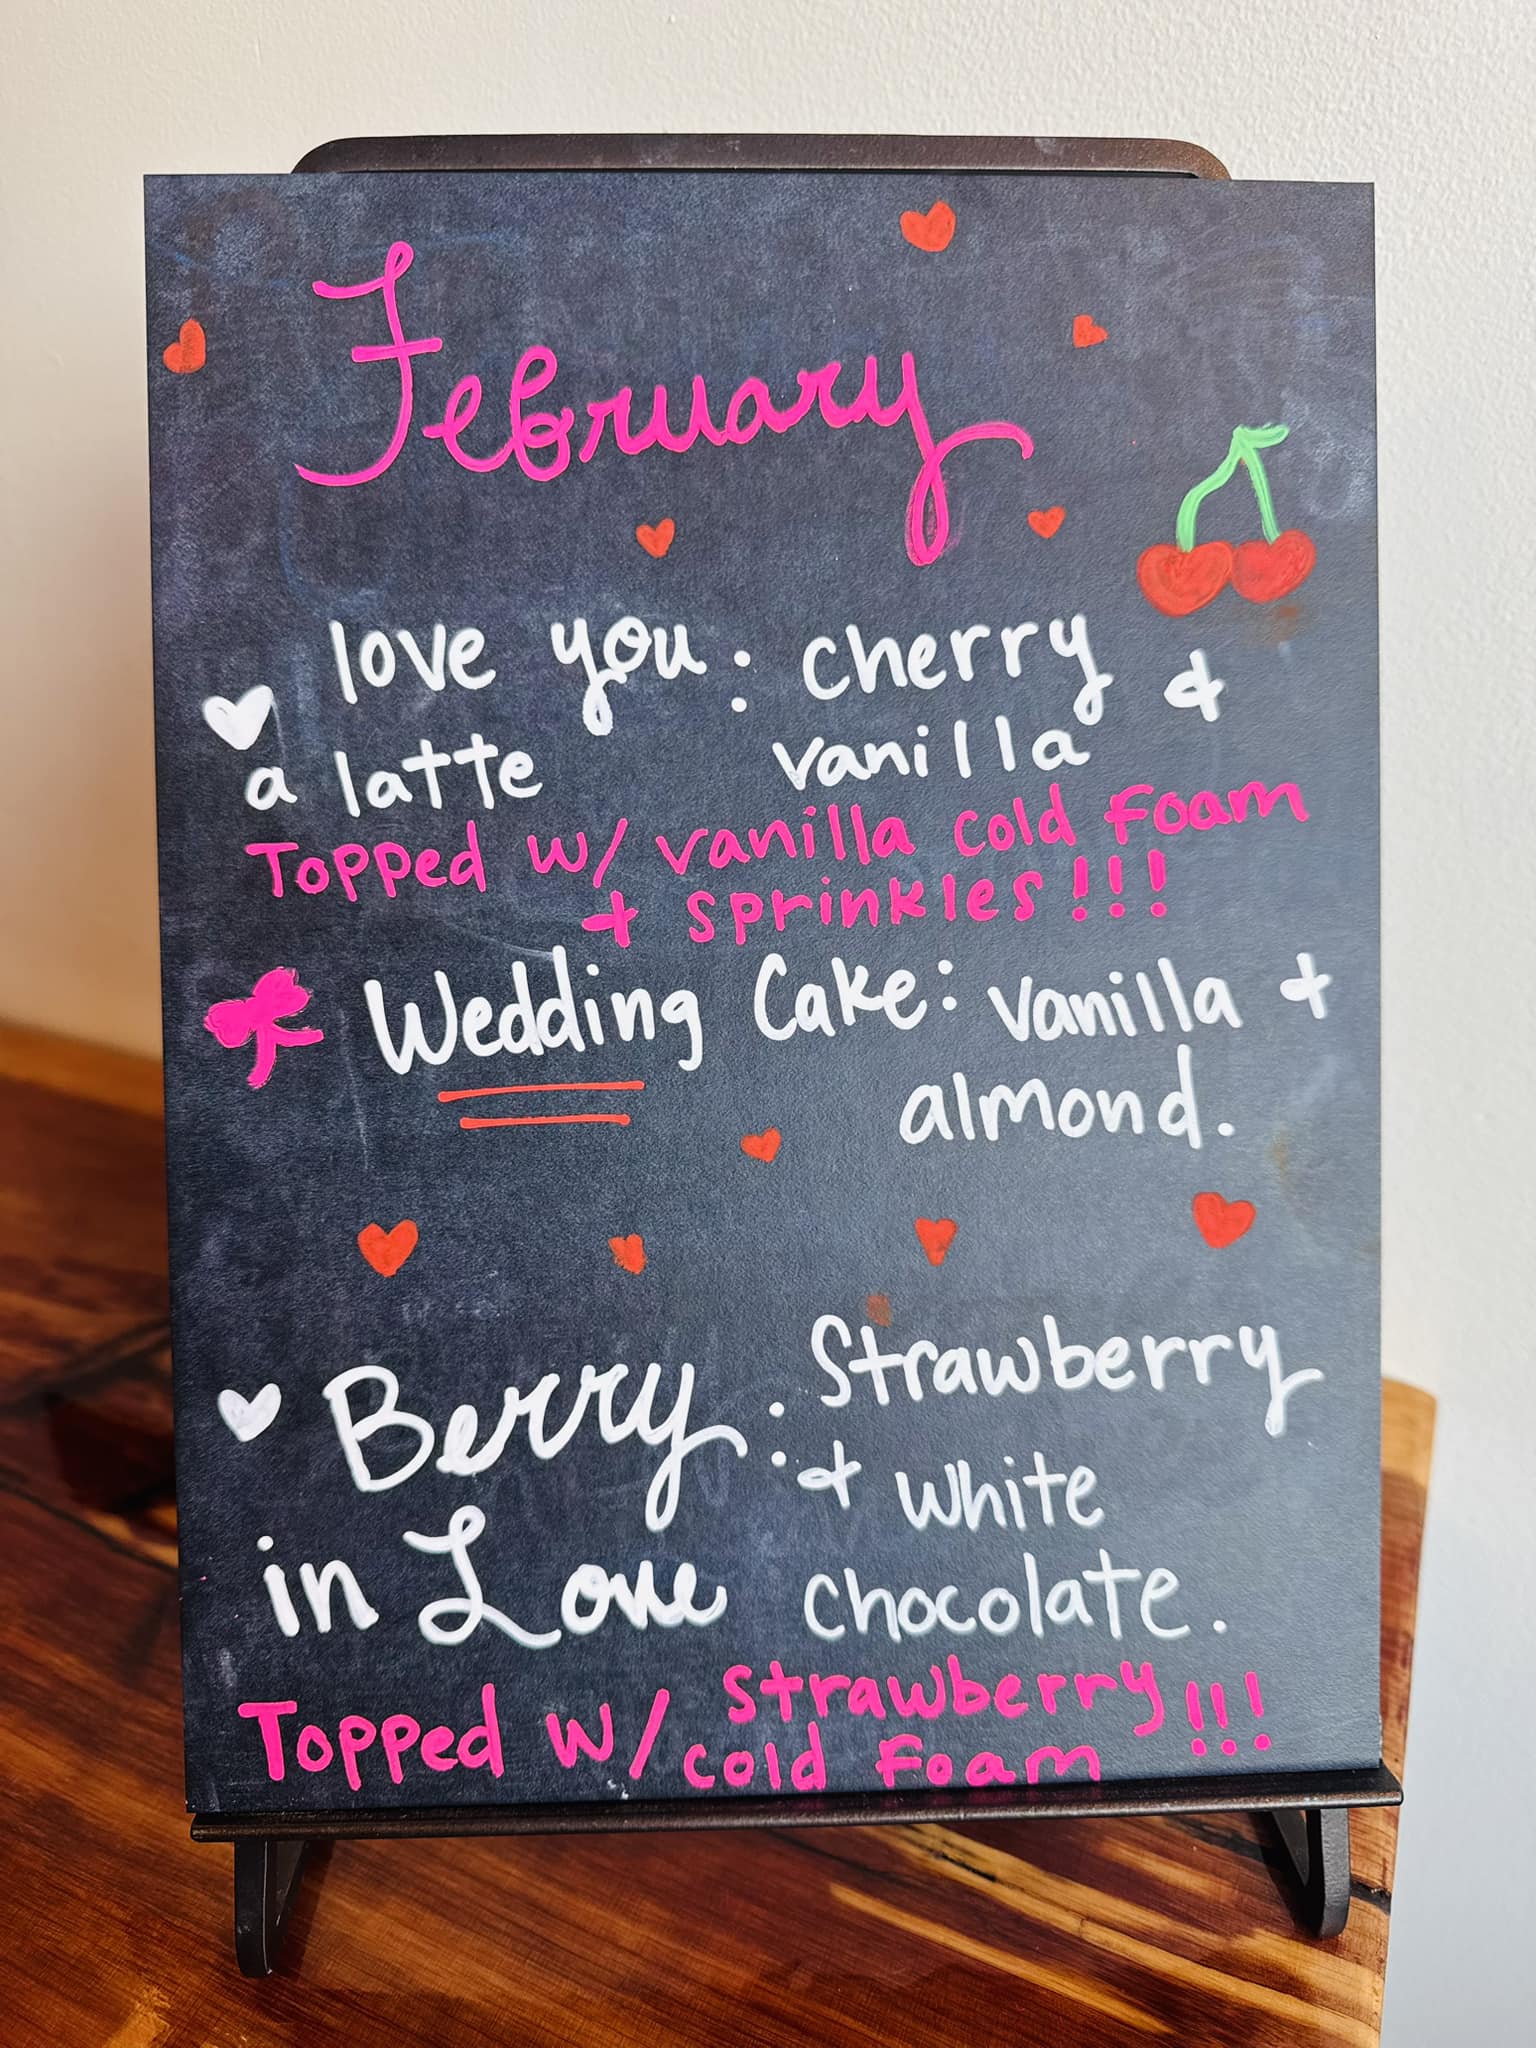 February
love you : cherry &
a latte vanilla
Topped w/ vanilla cold foam
+ sprinkles!!!
Wedding Cake: vanilla +
almond.
Berry : Strawberry
in Love & white
chocolate.
Topped w/ strawberry!!!
cold foam